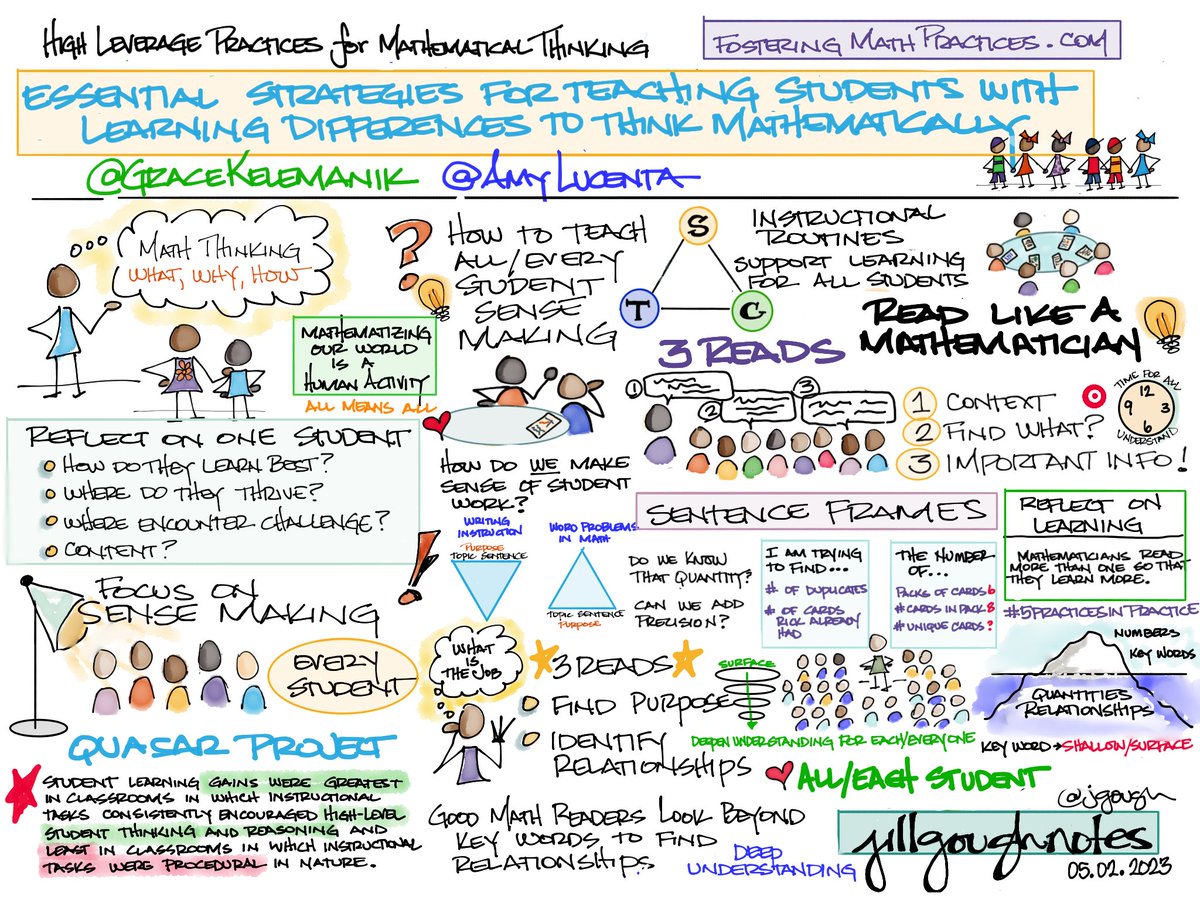 HIGH LEVERAGE PRACTICES for MATHEMATICAL THINKING
FOSTERING MATH PRACTICES.COM
ESSENTIAL STRATEGIES FOR TEACHING STUDENTS WITH
LEARNING DIFFERENCES TO THINK MATHEMATICALLY
@GRACEKELEMANIK @AMYLUCENTA
MATH THINKING
WHAT, WHY, HOW
?
MATHEMATIZING
OUR WORLD
IS A
HUMAN ACTIVITY
ALL MEANS ALL
REFLECT ON ONE STUDENT
HOW DO THEY LEARN BEST?
WHERE DO THEY THRIVE?
WHERE ENCOUNTER CHALLENGE?
CONTENT?
!
FOCUS ON
SENSE MAKING
EVERY
STUDENT
QUASAR PROJECT
STUDENT LEARNING GAINS WERE GREATEST
IN CLASSROOMS IN WHICH INSTRUCTIONAL
TASKS CONSISTENTLY ENCOURAGED HIGH-LEVEL
STUDENT THINKING AND REASONING AND
LEAST IN CLASSROOMS IN WHICH INSTRUCTIONAL
TASKS WERE PROCEDURAL IN NATURE.
HOW TO TEACH
ALL/EVERY
STUDENT
SENSE
MAKING
HOW DO WE MAKE
SENSE OF STUDENT
WORK?
WRITING
INSTRUCTION
PURPOSE
TOPIC SENTENCE
WORD PROBLEMS
IN MATH
TOPIC SENTENCE
PURPOSE
WHAT
IS
THE JOB
3 READS
FIND PURPOSE
IDENTIFY
RELATIONSHIPS
GOOD MATH READERS LOOK BEYOND
KEY WORDS TO FIND
RELATIONSHIPS.
DEEP
UNDERSTANDING
S
T
C
INSTRUCTIONAL
ROUTINES
SUPPORT LEARNING
FOR ALL STUDENTS
READ LIKE A
MATHEMATICIAN
3 READS
1
2
3
1 CONTEXT
2 FIND WHAT?
3 IMPORTANT INFO!
TIME FOR ALL
12
9 3
6
UNDERSTAND
SENTENCE FRAMES
DO WE KNOW
THAT QUANTITY?
CAN WE ADD
PRECISION?
I AM TRYING
TO FIND...
# OF DUPLICATES
# OF CARDS
RICK ALREADY
HAD
THE NUMBER
OF...
PACKS OF CARDS 6
# CARDS IN PACK 8
# UNIQUE CARDS ?
REFLECT ON
LEARNING
MATHEMATICIANS READ
MORE THAN ONE SO THAT
THEY LEARN MORE.
#5PRACTICESINPRACTICE
SURFACE
DEEPEN UNDERSTANDING FOR EACH/EVERYONE
NUMBERS
KEY WORDS
QUANTITIES
RELATIONSHIPS
KEY WORD → SHALLOW/SURFACE
ALL/EACH STUDENT
@jgough
jillgoughnotes
05.02.2023